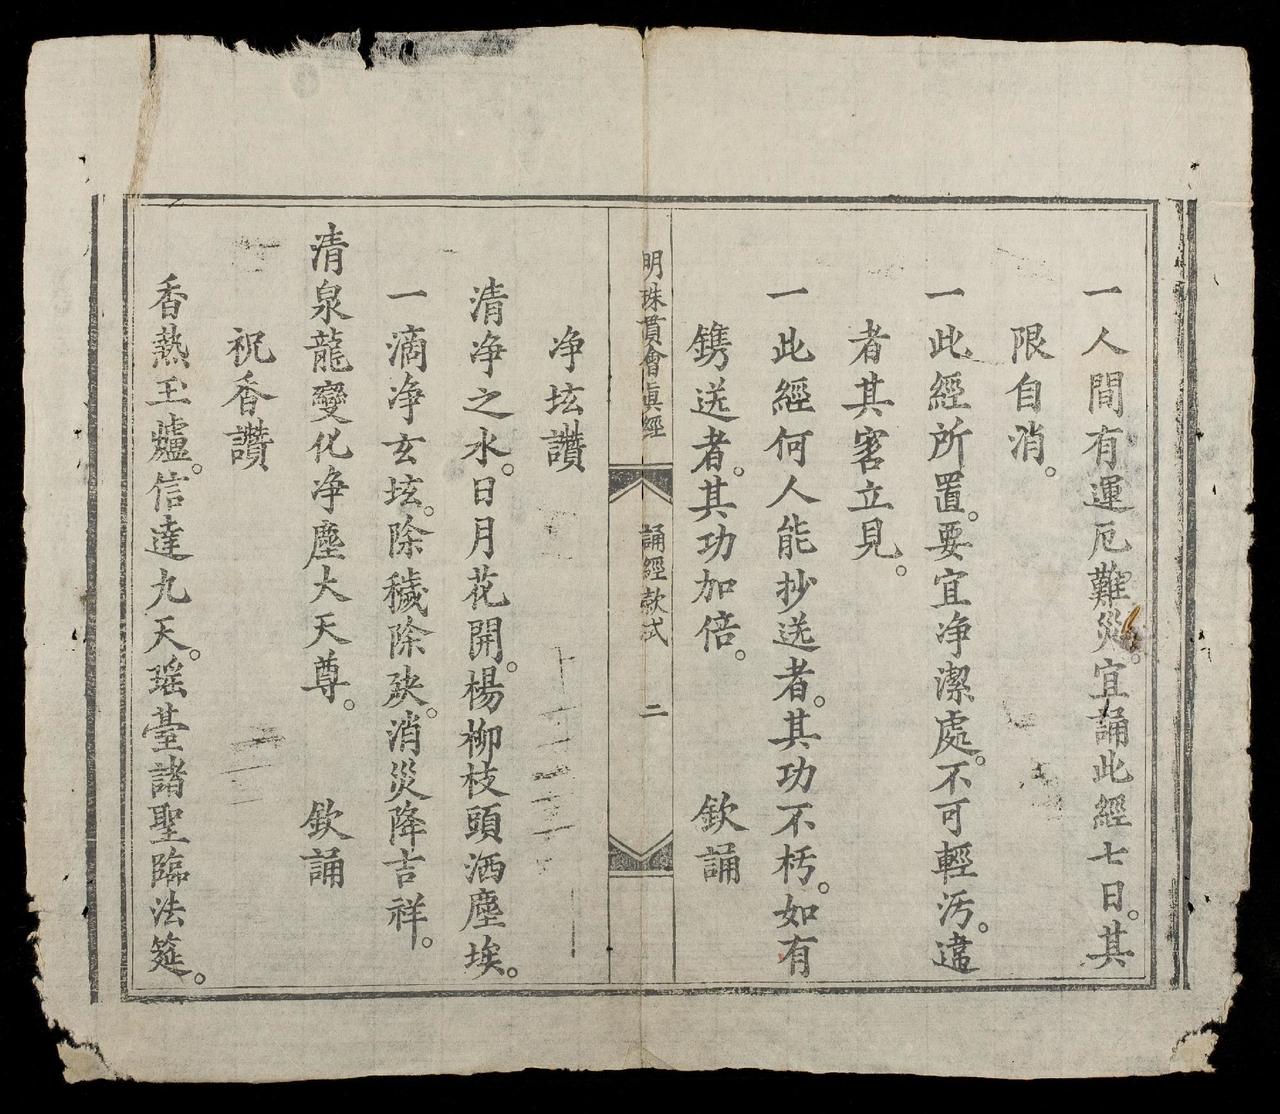 一人間有運厄難災。宜誦此經七日。其
限自消。
一此經所置。要宜净潔處。不可輕污。違
者其害立見。
一此經何人能抄送者。其功不朽。如有
鐫送者。其功加倍。
欽誦
明珠貫會真經
誦經款式
二
净垓讚
清净之水。日月花開。楊柳枝頭洒塵埃。
一滴净玄垓。除穢除殃。消災降吉祥。
清泉龍變化净塵大天尊。
欽誦
祝香讚
香熱玉爐。信達九天。瑶臺諸聖臨法筵。